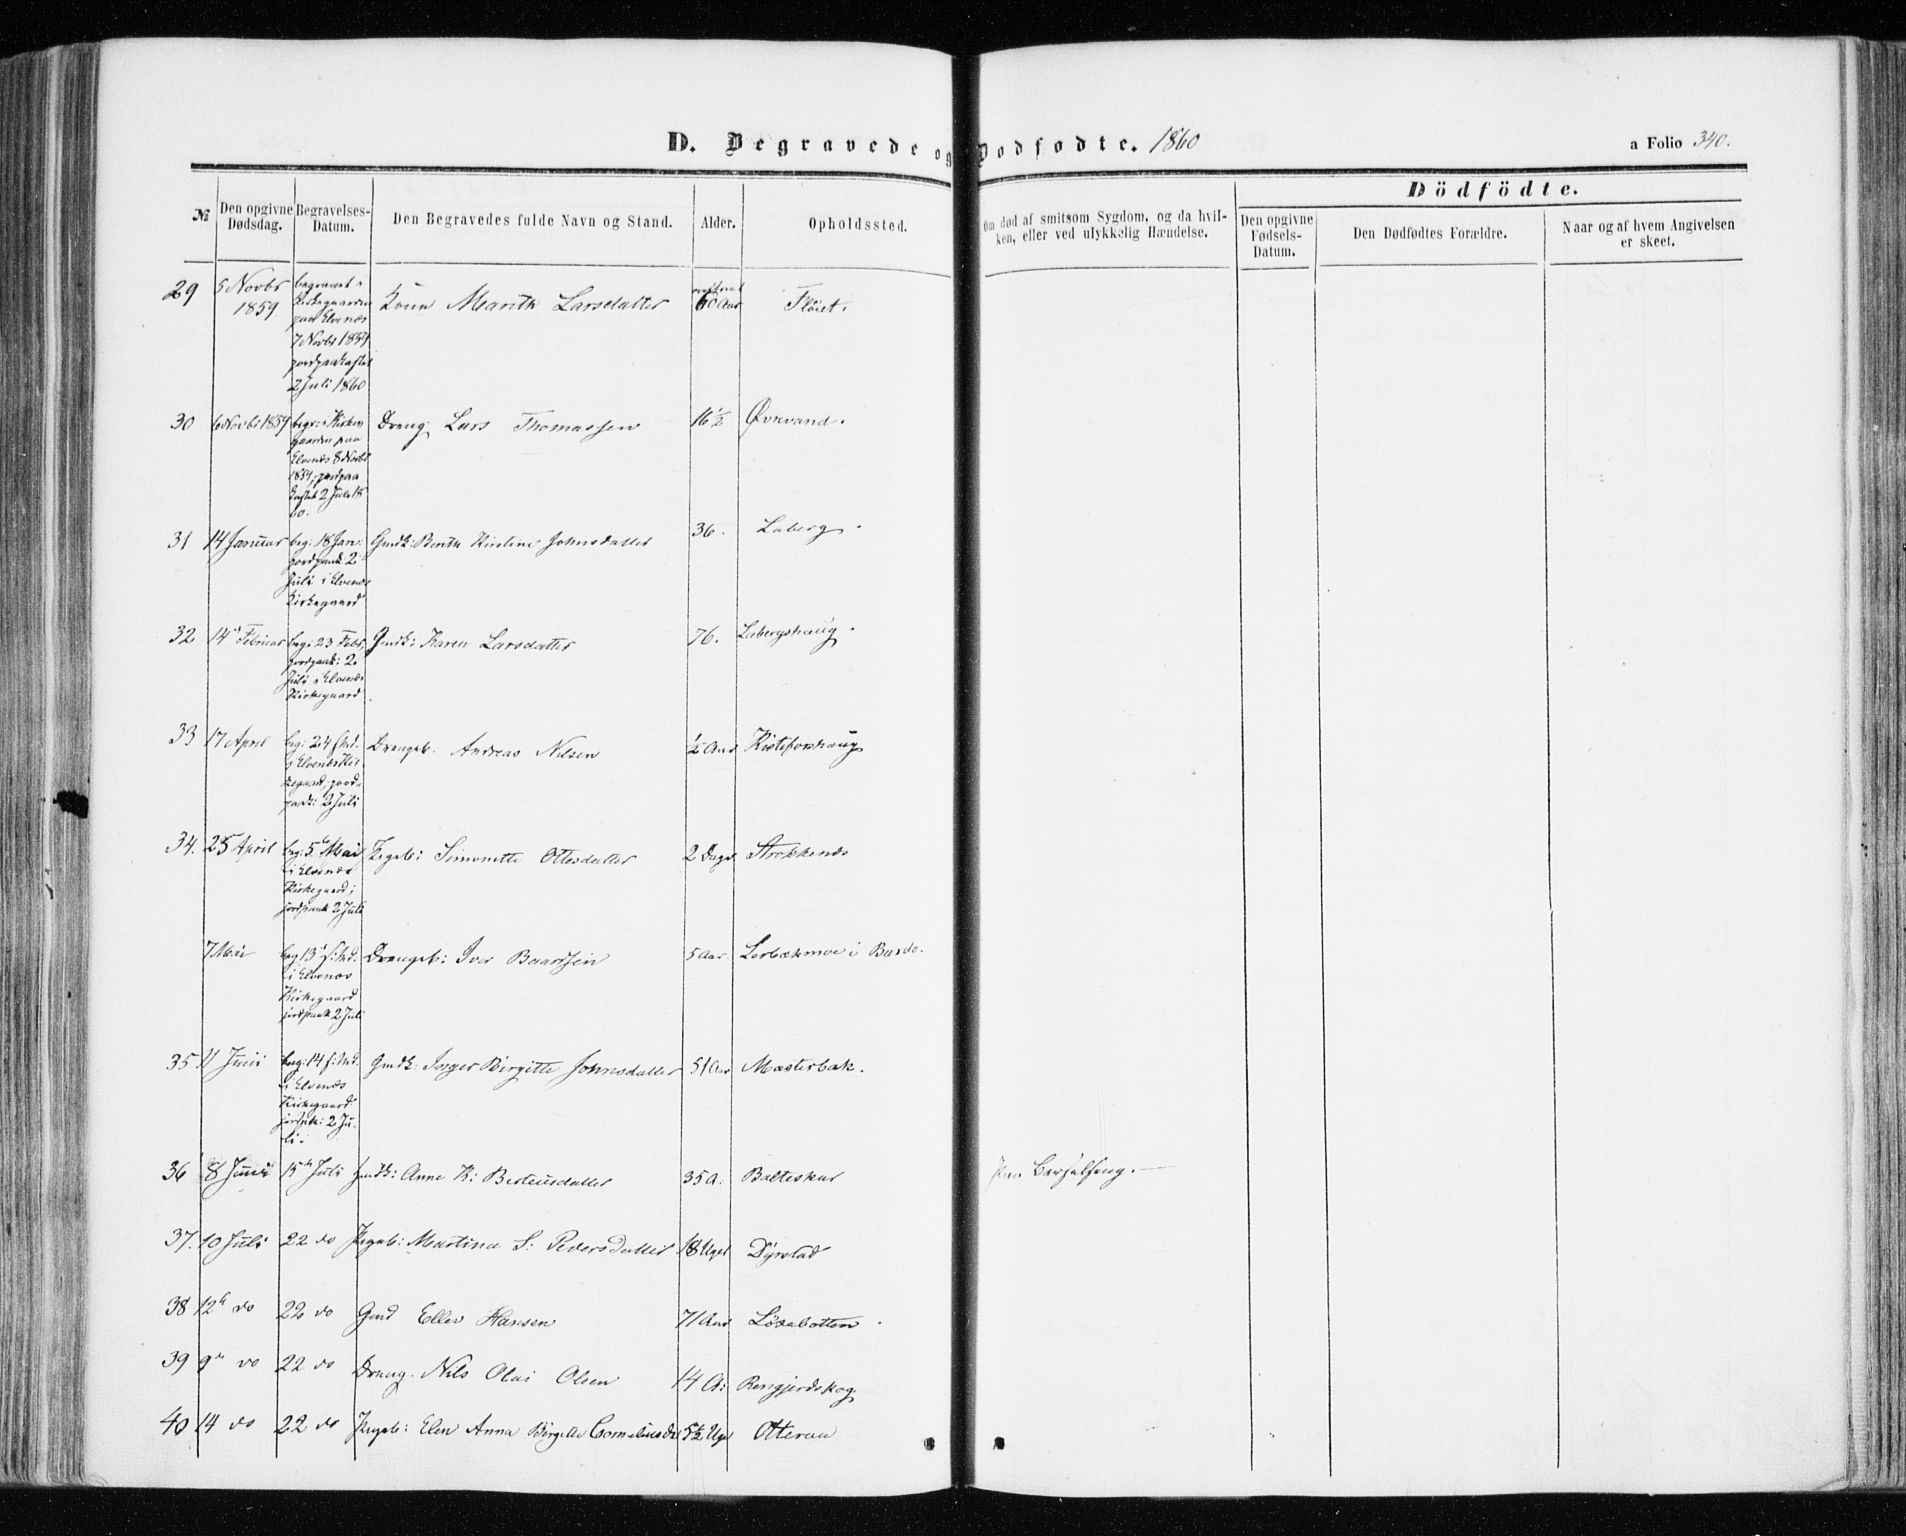 D. Begravede og Dodfødte. 1860
a Folio 340.
№
Den opgivne Dødsdag.
Begravelses-Datum.
Den Begravedes fulde Navn og Stand.
Alder.
Opholdssted.
Om død af smitsom Sygdom, og da hvilken, eller ved ulykkelig Hændelse.
Dödfödte.
Den opgivne Fødsels-Datum.
Den Dødfødtes Forældre.
Naar og af hvem Angivelsen er skeet.
29 5 Novbr 1859 begravet i Kirkegaarden paa Elvenæs 7 Novbr 1859 jordpaakastet 2 Juli 1860 Kone Marith Larsdatter 60 Aar Fløiet.
30 6 Novbr 1859 begr: i Kirkegaarden paa Elvenæs 8 Novbr 1859, jordpaakastet 2 Juli 1860. Dreng Lars Thomassen 16½ Øvrevand.
31 14 Januar beg: 18 Jan: jordpaak: 2 Juli i Elvenæs Kirkegaard Gmdk: Berith Kirstine Johnsdatter 36. Laberg.
32 14 Februar beg: 23 Febr, jordpaak: 2 Juli i Elvenæs Kirkegaard. Gmdk: Karen Larsdatter 76. Labergshaug.
33 17 April beg: 24 s: Md. i Elvenæs Kirkegaard, jordpaak: 2 Juli Drengeb. Andreas Nilsen ½ Aar Kistefoshaug
34. 25 April beg: 5 Mai i Elvenæs Kirkegaard; jordpaak 2 Juli Pigeb: Simonette Ottesdatter 2 Dage Strokkenæs
7 Mai beg 13 s: Md. i Elvenæs Kirkegaard jordpaak 2 Juli Drengeb: Iver Baardsen 5 Aar. Lerbækmoe i Bardo.
35 11 Juni beg: 14 s: Md. i Elvenæs Kirkegaard jordpk: 2 Juli. Gmdk: Inger Birgitte Johnsdatter 51 Aar Masterbak.
36 8 Juni 15 Juli Gmdk: Anne K: Berteusdatter 35 A: Balteskar Paa Barselseng.
37. 10 Juli 22 do Pigeb: Martina S: Pedersdatter 18 Uger Dyrstad
38 12 do 22 do Gmd Eller Hansen 71 Aar Løxebotten.
39 9 do 22 do Dreng. Nils Olai Olsen 14 A: Rengjerdskog
40 14 do 22 do Pigeb: Elen Anna Birgitte Corneliusdr 5½ Uge Otteraa